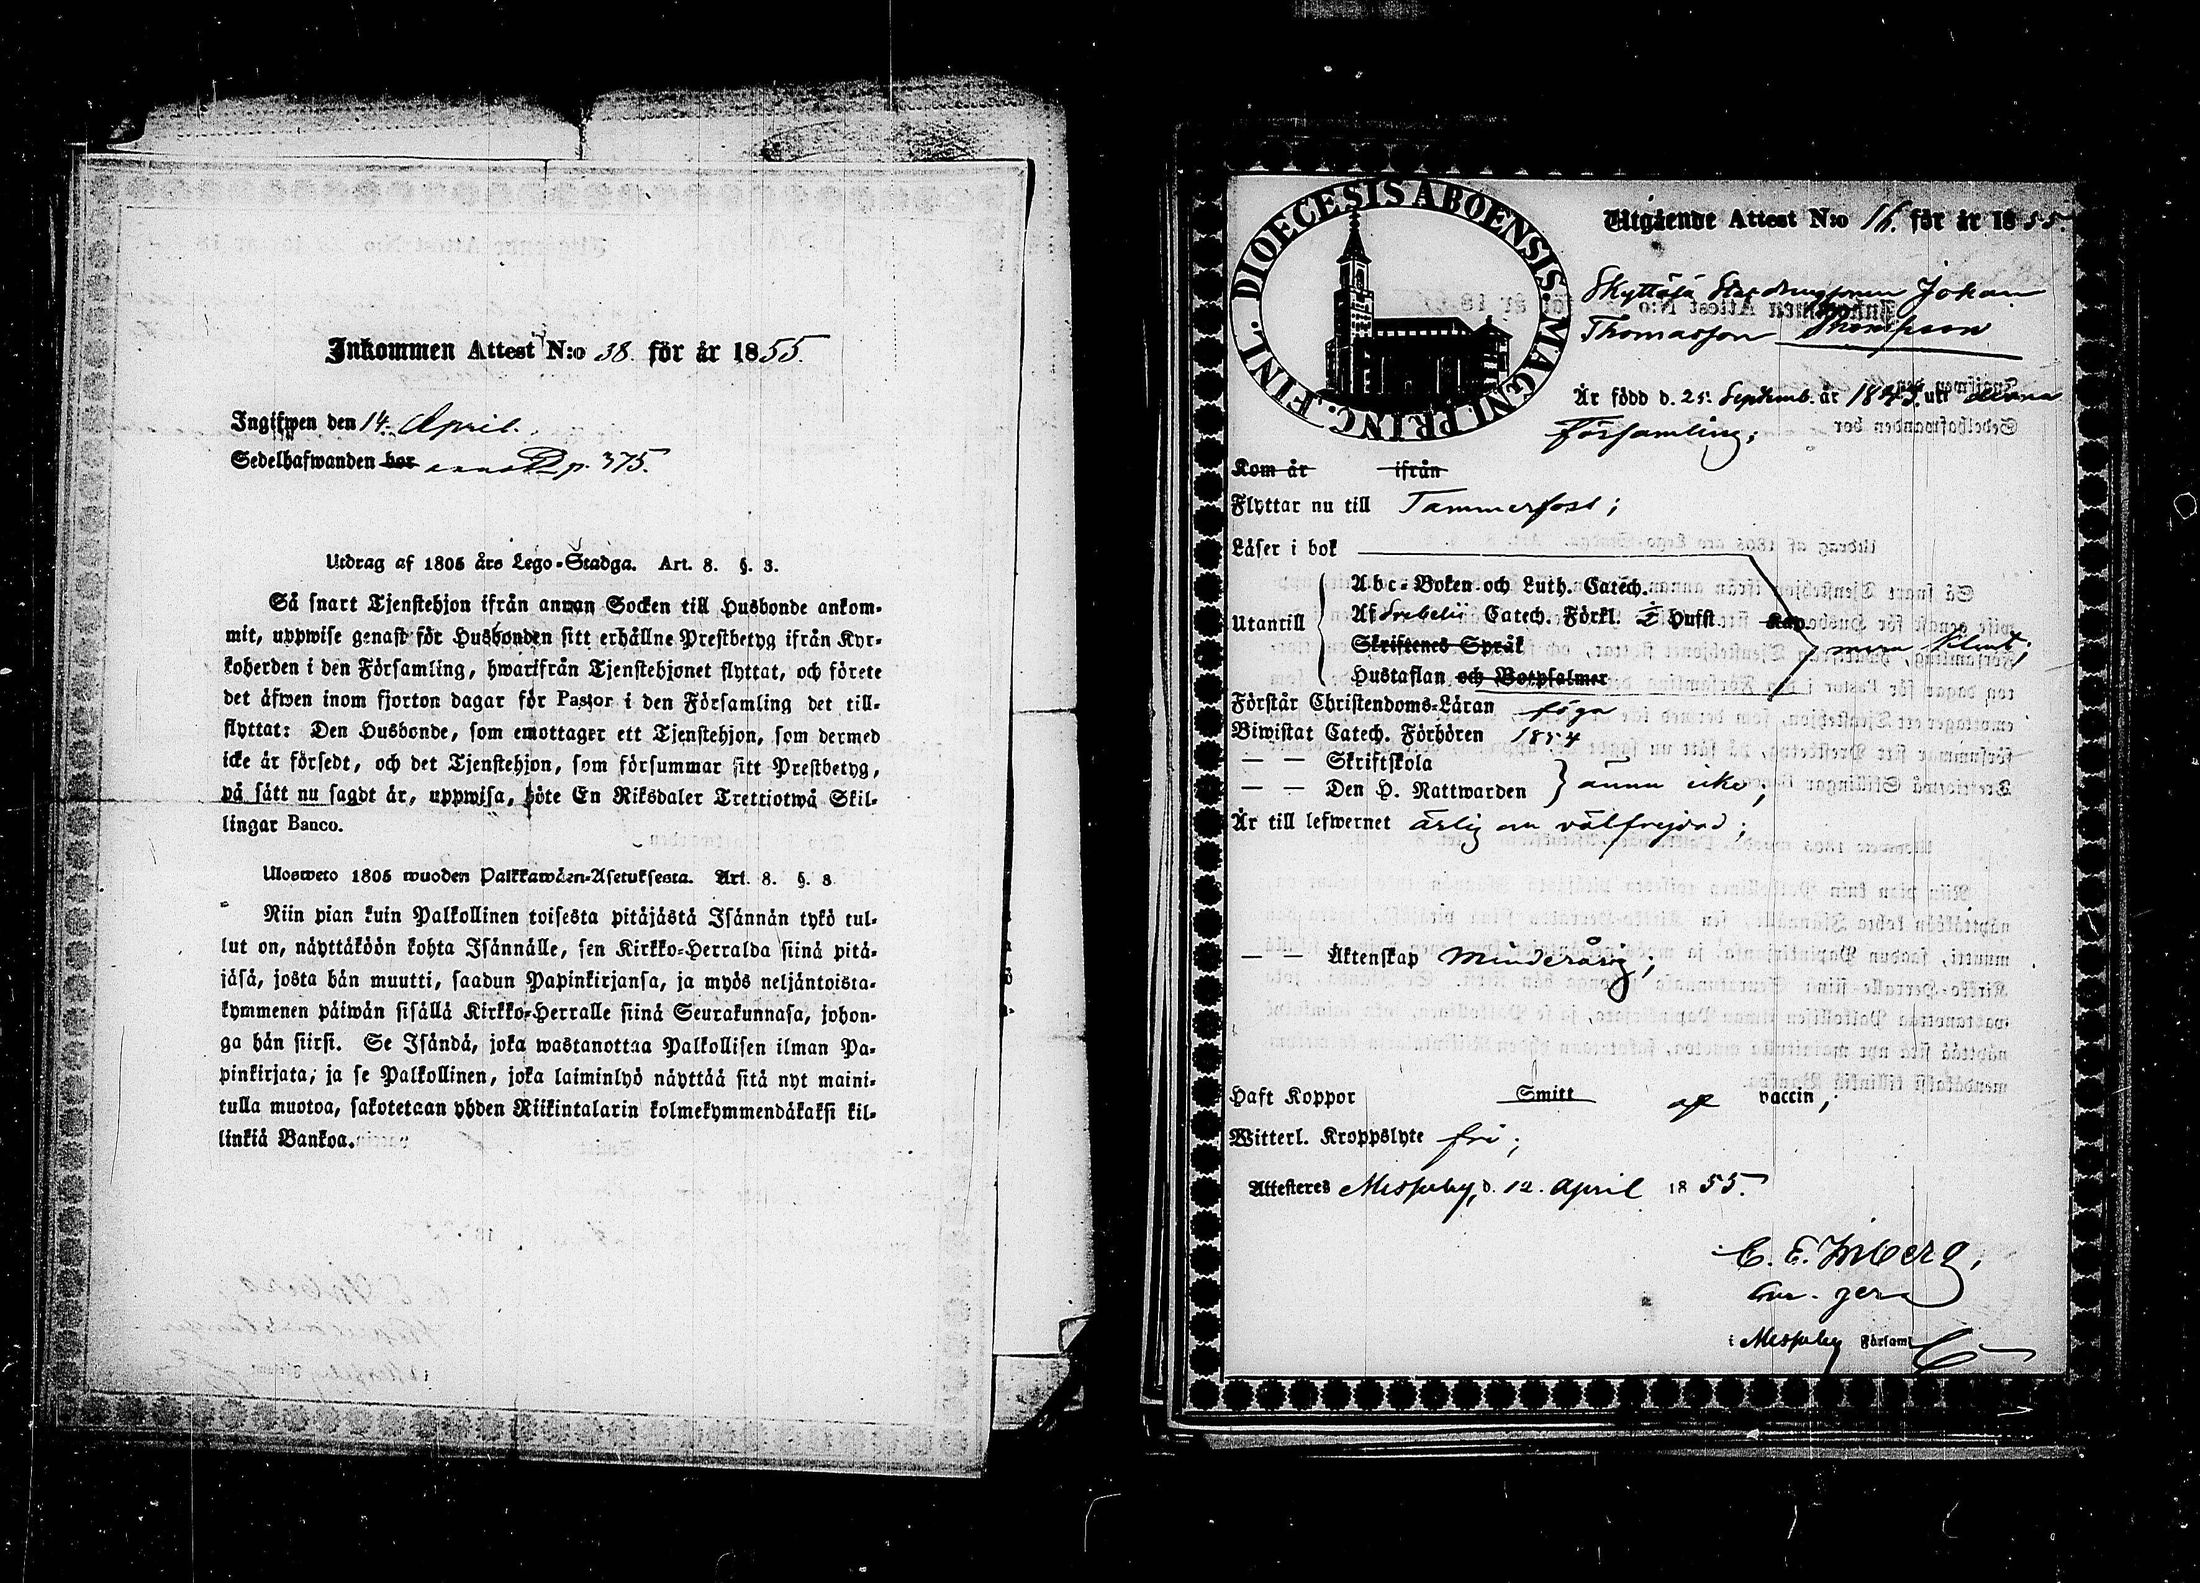 Inkommen Attest N:o 38. för år 1855.
Ingifwen den 14. April.
Sedelhafwanden bor p. 375.
Utdrag af 1805 års Lego-Stadga. Art. 8. §. 3.
Så snart Tjenstehjon ifrån annan Socken till Husbonde ankom-
mit, uppwise genast för Husbonden sitt erhållne Prestbetyg ifrån Kyr-
koherden i den Församling, hwarifrån Tjenstehjonet flyttat, och förete
det äfwen inom fjorton dagar för Pastor i den Församling det till-
flyttat: Den Husbonde, som emottager ett Tjenstehjon, som dermed
icke är försedt, och det Tjenstehjon, som försummar sitt Prestbetyg,
på sätt nu sagdt är, uppwisa, böte En Riksdaler Trettiotwå Skil-
lingar Banco.
Ulosweto 1805 wuoden Palkkawäen-Asetuksesta. Art. 8. §. 3
Niin pian kuin Palkollinen toisesta pitäjästä Isännän tykö tul-
lut on, näyttäköön kohta Isännälle, sen Kirkko-Herralda siinä pitä-
jäsä, josta hän muutti, saadun Papinkirjansa, ja myös neljäntoista-
kymmenen päiwän sisällä Kirkko-Herralle siinä Seurakunnasa, johon-
ga hän siirsi. Se Isändä, joka wastanottaa Palkollisen ilman Pa-
pinkirjata, ja se Palkollinen, joka laiminlyö näyttää sitä nyt maini-
tulla muotoa, sakotetaan yhden Riikintalarin kolmekymmendäkaksi kil-
linkiä Bankoa.
DIOECESIS ABOENSIS. MAGNI PRINC. FINL.
Utgående Attest N:o 16. för år 1855.
Johan
Thomasson
Är född d. 25. Septemb. år utt denna
Församling;
Kom år ifrån
Flyttar nu till Tammerfors;
Läser i bok
Utantill
Abc-Boken och Luth. Catech.
Af Svebelii Catech. Förkl. Husst. Kap.
Skriftenes Språk
Hustaflan och Botpsalmer
Förstår Christendoms-Läran föga
Biwistat Catech. Förhören 1854
— — Skriftskola
— — Den H. Nattwarden ännu icke;
Är till lefwernet ärlig och välfrejdad;
— — Äktenskap Minderårig;
Haft Koppor Smitt af vaccin;
Witterl. Kroppslyte fri;
Attesteres Messuby, d. 12. April 1855.
C. E. Inberg,
i Messuby Församl.